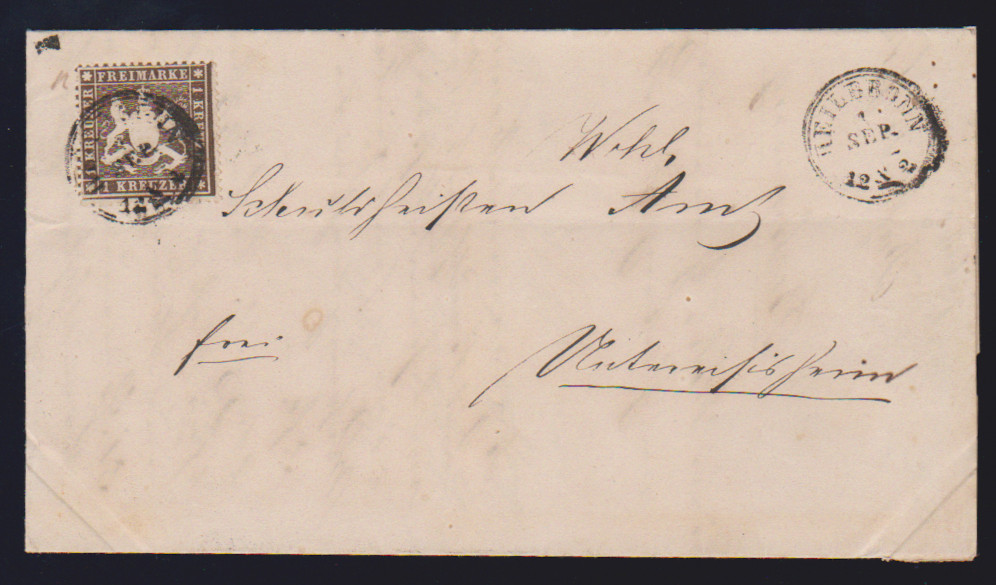 FREIMARKE
1 KREUZER
1 KR
1 KREUZER
SEP
12
HEILBRONN
1
SEP.
12 N 2
Wohl.
Schuldheißen Amt
frei
Untereisisheim